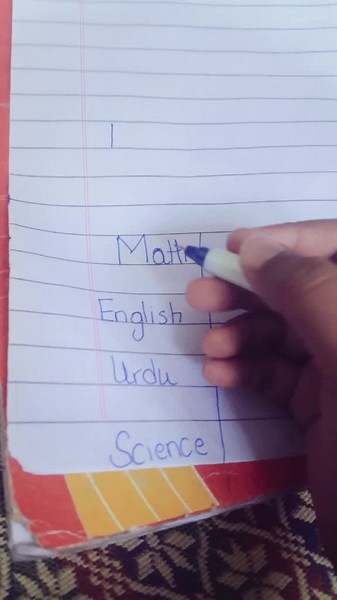 Math
English
Urdu
Science